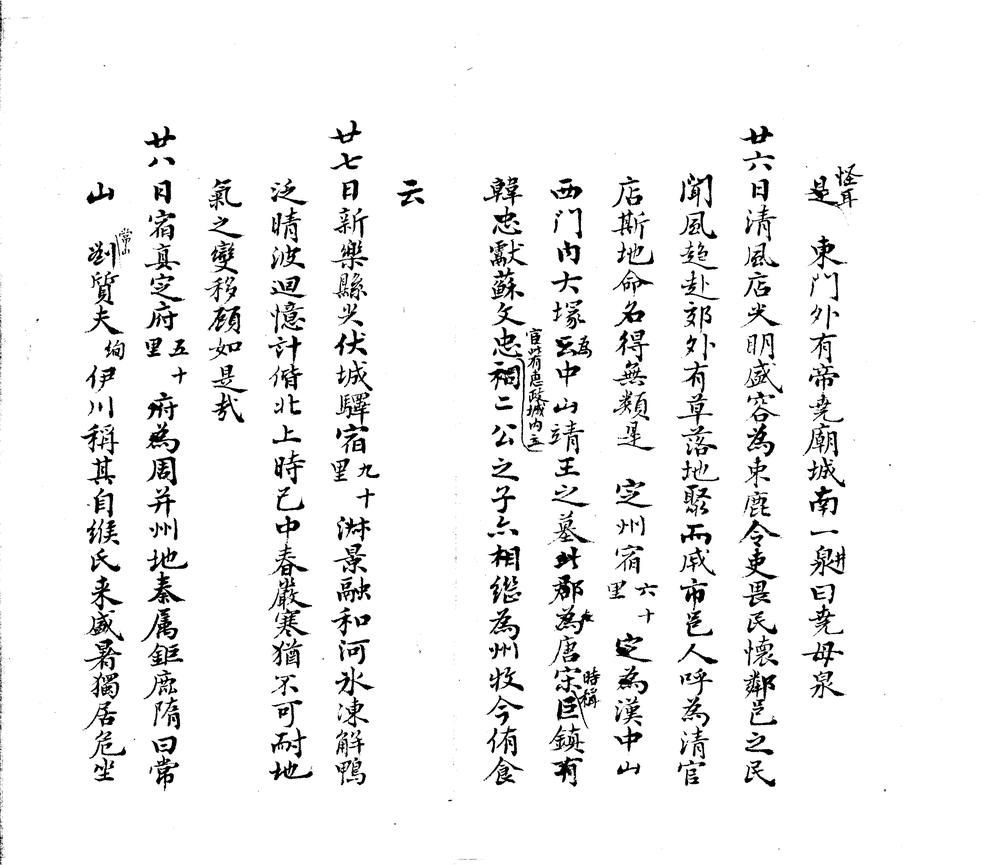 怪耳
是　東門外有帝堯廟城南一泉井曰堯母泉
廿六日清風店尖明盛容為束鹿令吏畏民懷鄰邑之民
聞風趍赴郊外有草落地聚而成市邑人呼為清官
店斯地命名得無類是　定州宿六十里　定為漢中山
西門内大塚為云中山靖王之墓此郡為在唐宋時稱巨鎮有
韓忠獻蘇文忠官此有惠政城内立祠二公之子亦相繼為州牧今侑食
云
廿七日新樂縣尖伏城驛宿九十里　淑景融和河氷凍解鴨
泛晴波迴憶計偕北上時已中春嚴寒猶不可耐地
氣之變移頋如是㢤
廿八日宿真定府五十里　府為周并州地秦属鉅鹿隋曰常
山　常山劉質夫絢伊川稱其自緱氏来盛暑獨居危坐